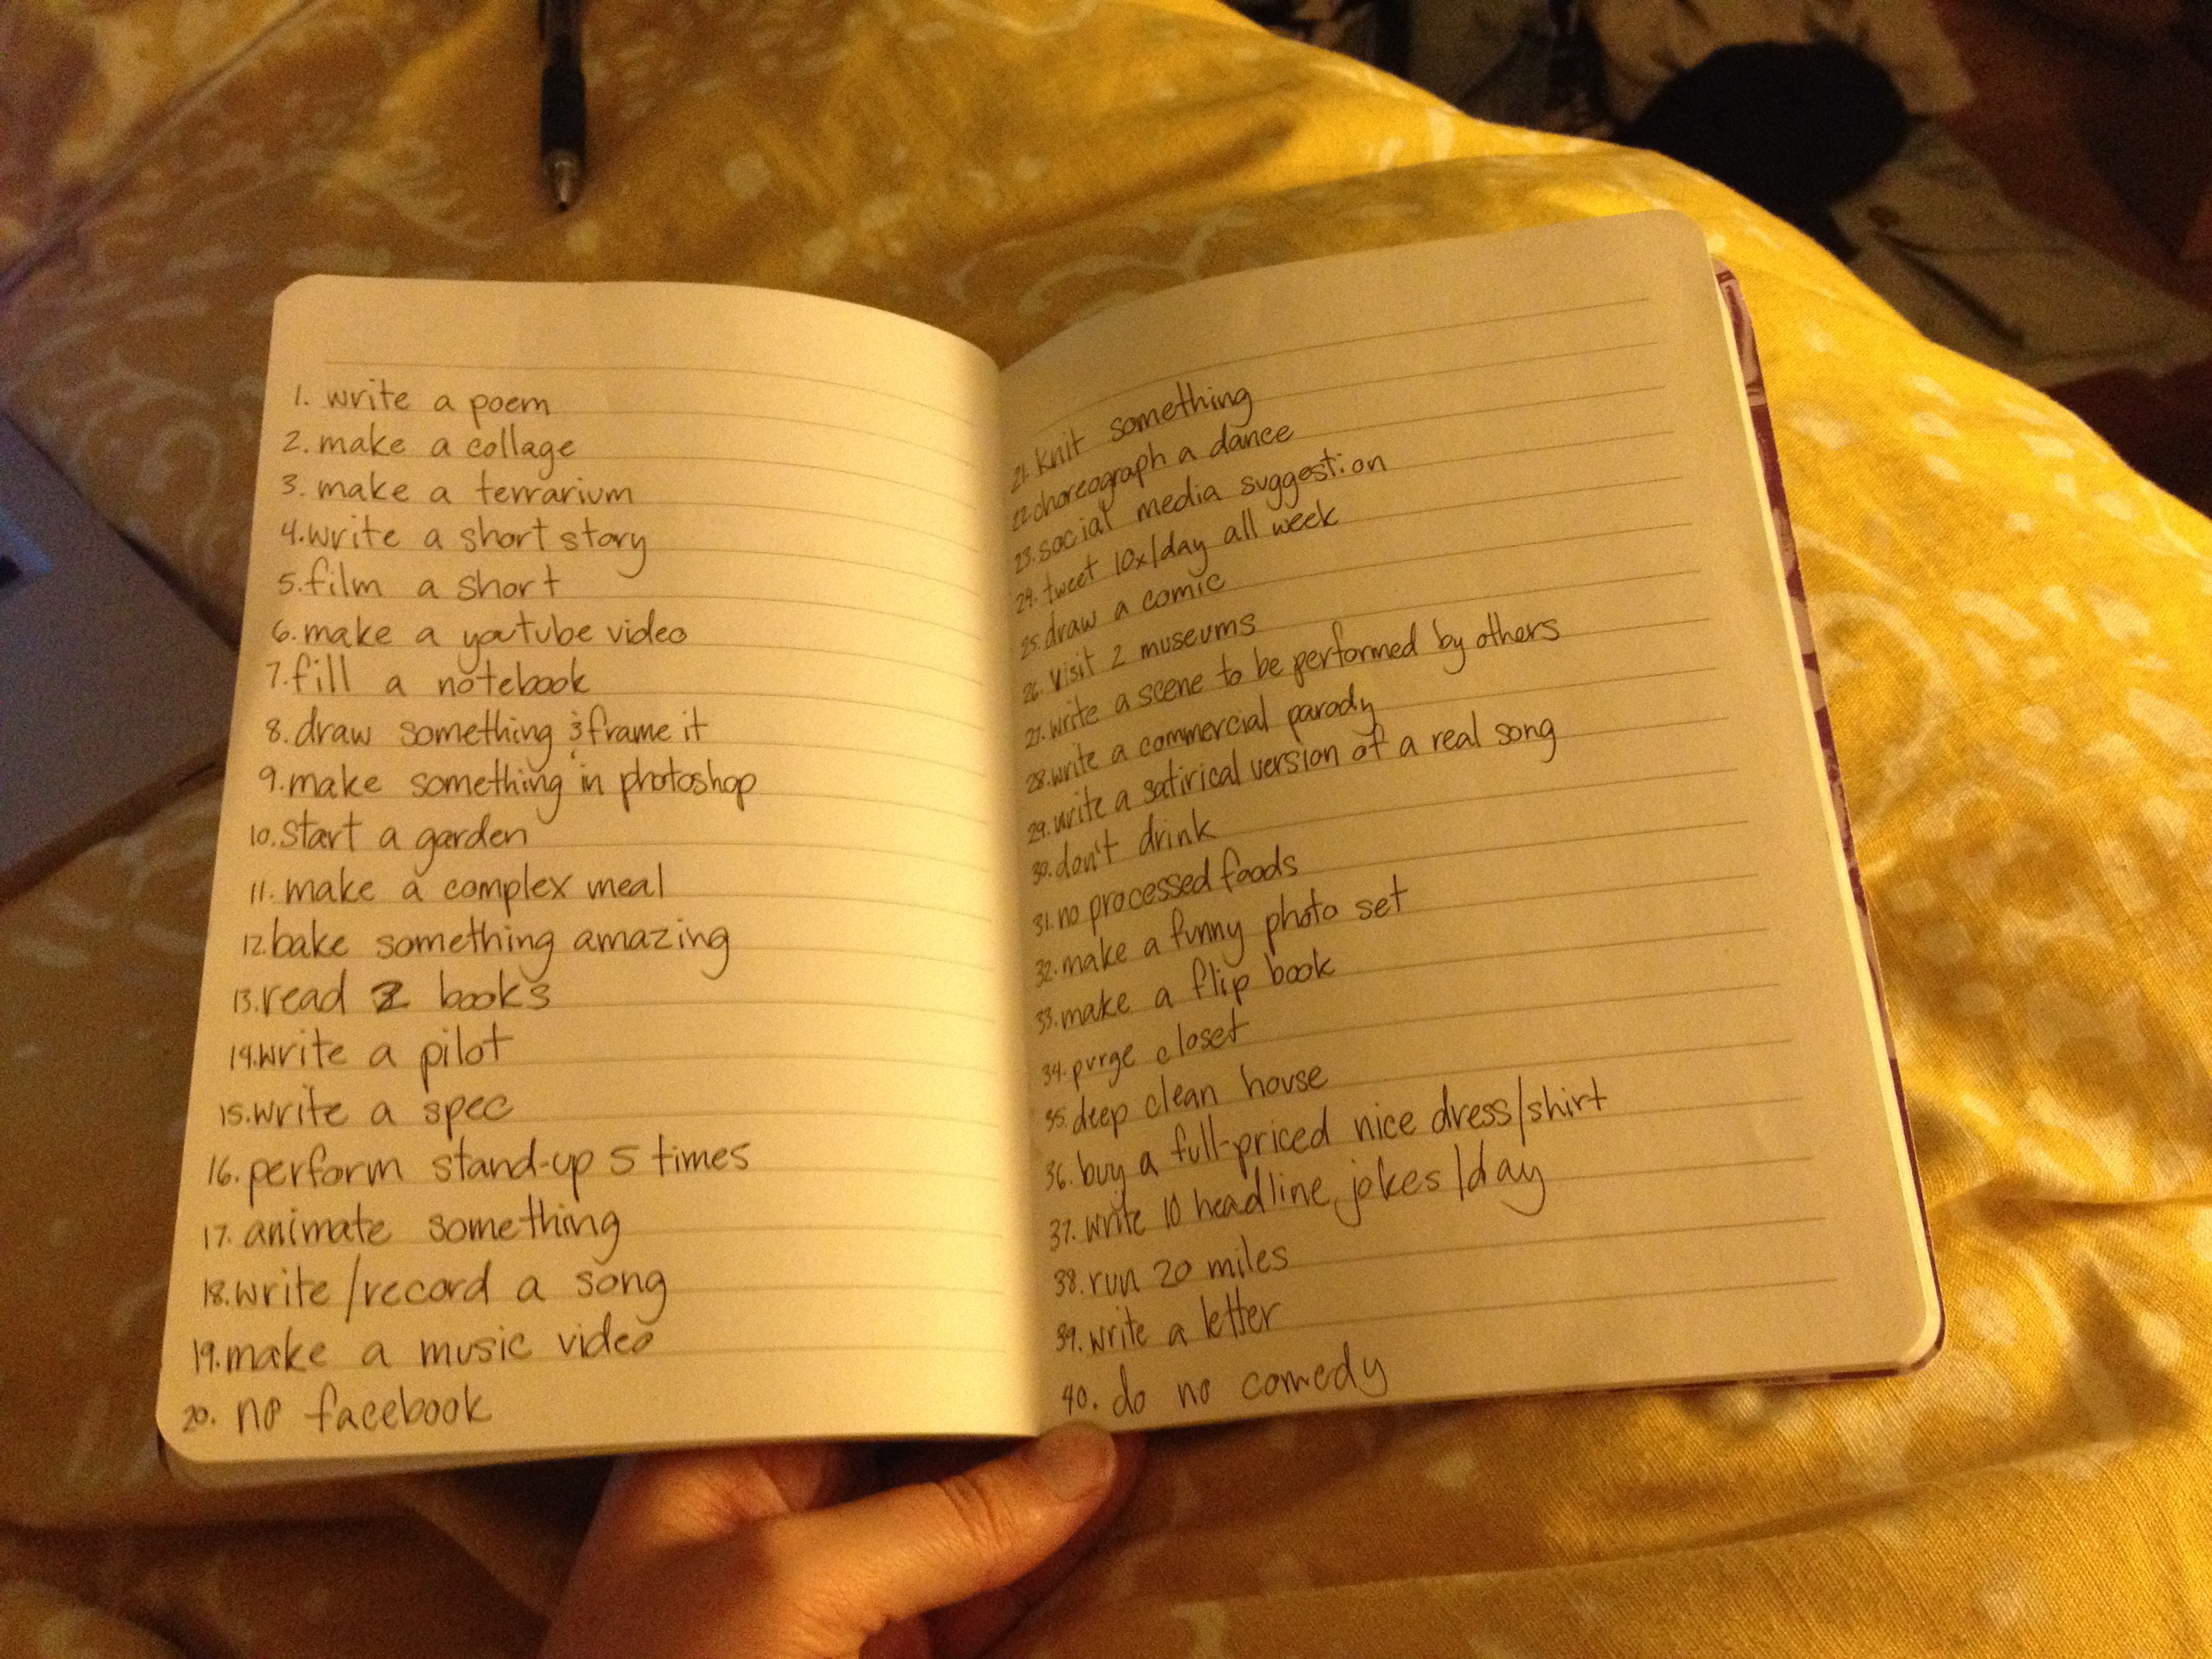 1. write a poem
2. make a collage
3. make a terrarium
4. write a short story
5. film a short
6. make a youtube video
7. fill a notebook
8. draw something & frame it
9. make something in photoshop
10. start a garden
11. make a complex meal
12. bake something amazing
13. read 2 books
14. write a pilot
15. write a spec
16. perform stand-up 5 times
17. animate something
18. write/record a song
19. make a music video
20. no facebook
21. knit something
22. choreograph a dance
23. social media suggestion
24. tweet 10x/day all week
25. draw a comic
26. visit 2 museums
27. write a scene to be performed by others
28. write a commercial parody
29. write a satirical version of a real song
30. don't drink
31. no processed foods
32. make a funny photo set
33. make a flip book
34. purge closet
35. deep clean house
36. buy a full-priced nice dress/shirt
37. write 10 headline jokes/day
38. run 20 miles
39. write a letter
40. do no comedy